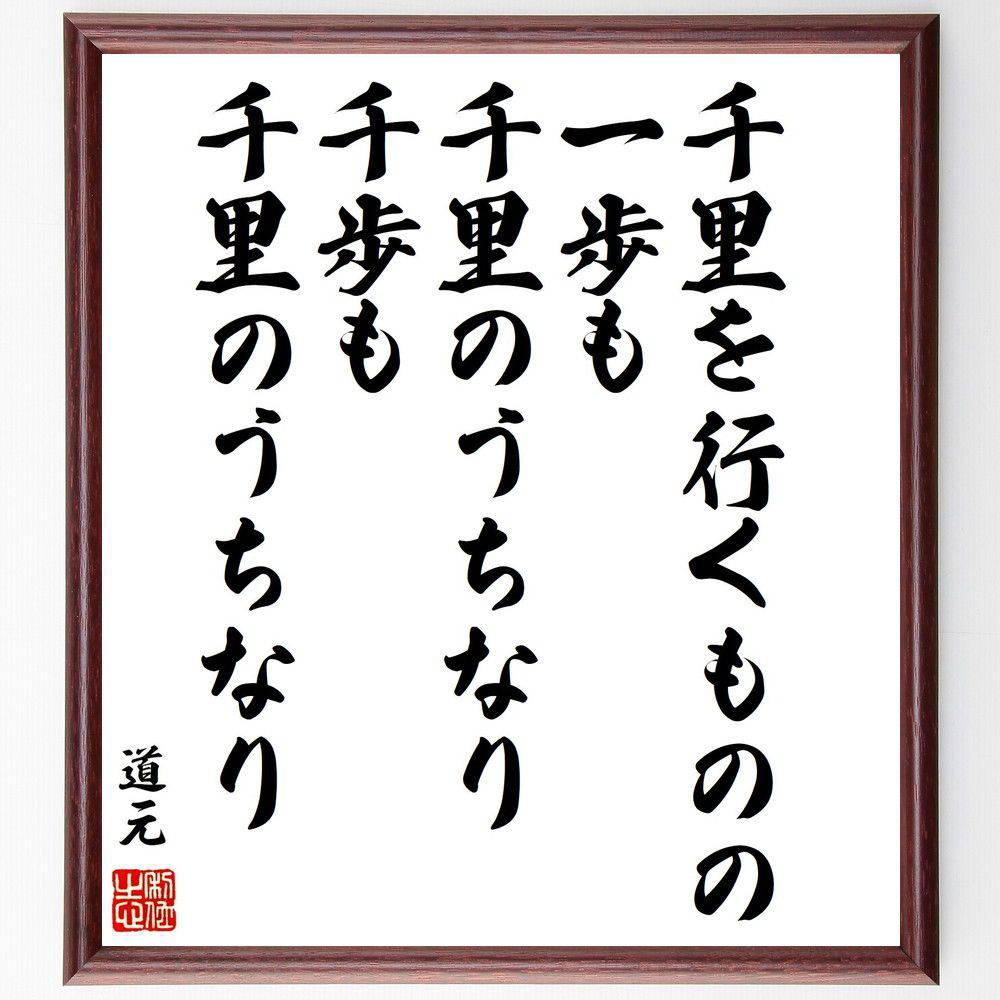 千里を行くものの
一歩も
千里のうちなり
千歩も
千里のうちなり
道元